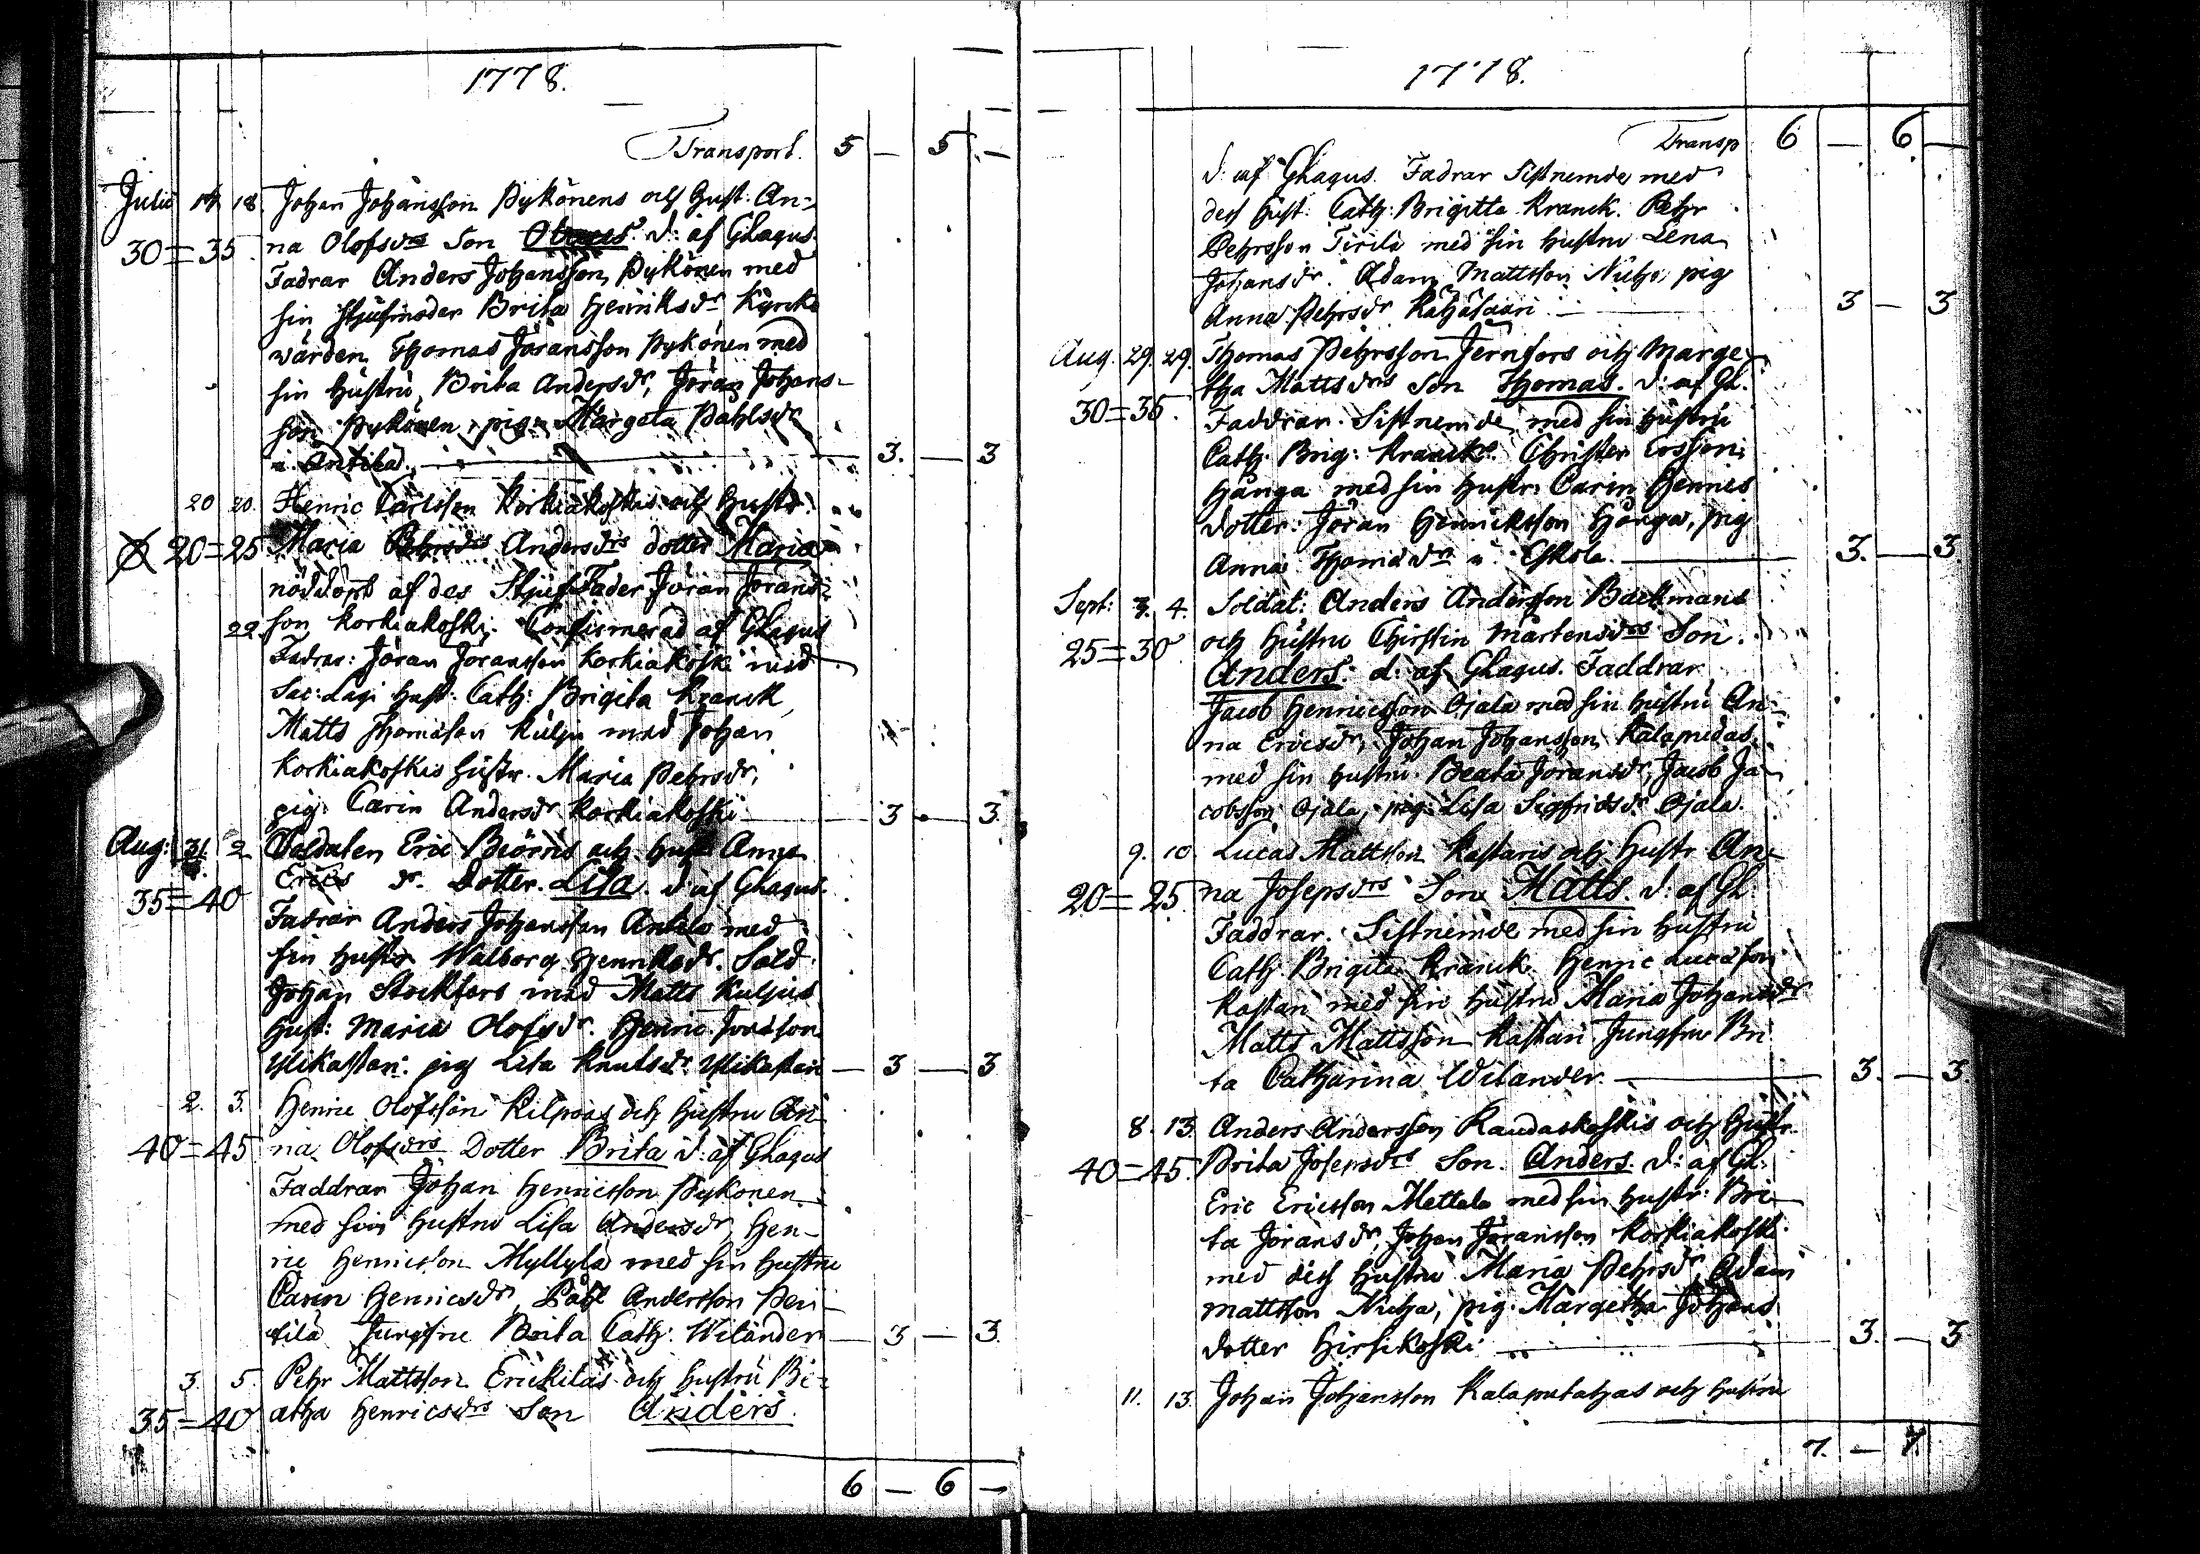 1778.
Transport. 5 — 5 —
Julii 14 18. Johan Johansson Pykönens och Hust: An-
30=35 na Olofsdrs Son d: af Chagus.
Fadrar Anders Johansson Pykönen med
sin Stjufmoder Brita Henriksdr Kyrko
värden Thomas Jöransson Pykönen med
sin hustru, Brita Andersdr, Jöran Johans-
son Pykönen, pig. Margeta Påhlsdr
i Anttila. — 3. — 3
20 20. Henric Carlsson Korkiakoskis och Hustr:
20=25 Maria Andersdrs dotter Maria
nöddöpt af des Stjuf Fader Jöran Jörans-
22. son Korkiakoski. Confirmerad af Chagus
Fadrar: Jöran Jöransson Korkiakoski med
Sac: Lagi Hust: Cath: Brigita Kranck,
Matts Thomasson Kulju med Johan
Korkiakoskis Hustr. Maria Pehrsdr,
pig: Carin Andersdr Korkiakoski — 3 — 3.
Aug: 31. 2 Soldaten Eric Biörns och Hust Anna
35=40 Erics dr. Dotter. Lisa. d af Chagus.
Fadrar Anders Johansson Anttila med
sin Hustr Walborg Henriksdr. Sold.
Johan Stockfors med Matts Kuljus
Hust: Maria Olofsdr. Henric Jöransson
Ylikastari: pig Lisa Knutsdr. Ylikastari — 3 — 3
2. 3. Henric Olofsson Kilpoas och Hustru An-
40=45 na Olofsdrs Dotter Brita d: af Chagus
Faddrar Johan Henricsson Pykönen
med sin Hustru Lisa Andersdr, Hen-
ric Henricsson Myllylä med sin Hustru
Carin Henricsdr, Påhl Andersson Pen-
tilä Jungfru Brita Cath: Wilander — 3 — 3.
3. 5. Pehr Mattsson Erickilas och Hustru Be-
35=40 atha Henricsdrs Son Anders.
6 — 6 —
1778.
Transp 6 — 6 —
d: af Chagus. Fadrar Sistnemde med
dess Hust: Cath: Brigitta Kranck. Pehr
Pehrsson Tirilä med sin Hustru Lena
Johansdr. Adam Mattsson Niuha, pig
Anna Pehrsdr Rahaluari — 3 — 3
Aug. 29. 29. Thomas Pehrsson Jernfors och Marge-
tha Mattsdrs Son Thomas. d: af Ch.
30=35. Faddrar. Sistnemde med sin Hustru
Cath: Brig: Kranck. Christer Ersson
Hånga med sin Hustr Carin Hennes
dotter: Jöran Henricksson Hånga, pig
Anna Thomasdr i Eskola. — 3. — 3.
Sept: 3. 4. Soldat: Anders Andersson Backmans
25=30 och Hustru Chirstin Mårtensdrs Son.
Anders. d: af Chagus. Faddrar
Jacob Henricsson Ojala med sin Hustru An-
na Ericsdr, Johan Johansson Kalapudas,
med sin Hustru. Beata Jöransdr, Jacob Ja-
cobsson Ojala, pig: Lisa Sigfridsdr Ojala.
9. 10. Lucas Mattsson Kastaris och Hustr An-
20=25. na Josepsdrs Son Matts. d: af Ch:
Faddrar. Sistnemde med sin Hustru
Cath Brigita Kranck. Henric Lucasson
Kastari med sin Hustru Maria Johansdr
Matts Mattsson Kastari Jungfru Bri
ta Catharina Wilander. — 3. — 3.
8. 13. Anders Andersson Raudaskoskis och Hustr.
40=45. Brita Josepsdrs Son. Anders. d: af Ch:
Eric Ericsson Mettala med sin Hustr: Bri-
ta Jöransdr, Johan Jöransson Korkiakoski.
med dess Hustru Maria Pehrsdr, Adam
Mattsson Niuha, pig. Margetha Johans
dotter Hirsikoski — 3. — 3
11. 13. Johan Johansson Kalaputahas och Hustru
7. — 7.